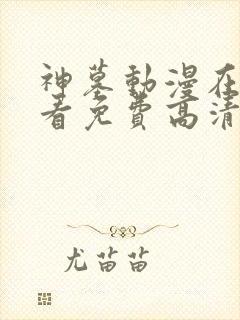 神墓動漫在
看免費高清
尤苗苗